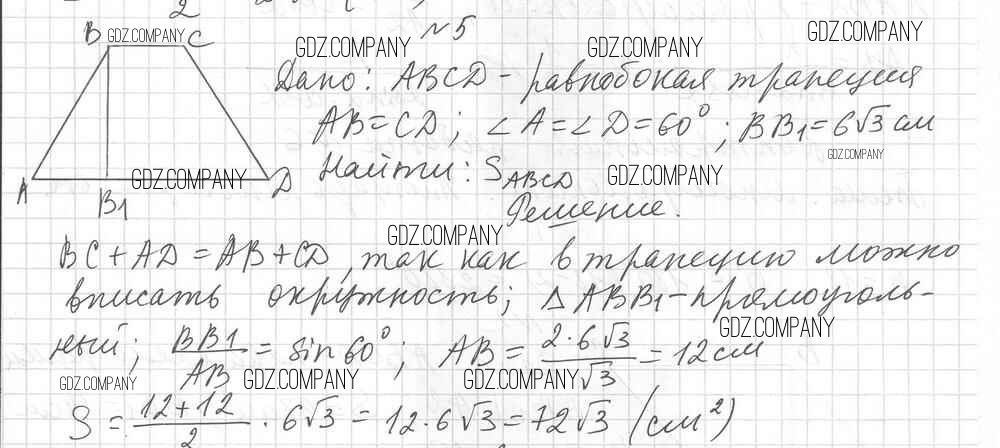 2
B GDZ.COMPANY C
№5
GDZ.COMPANY GDZ.COMPANY GDZ.COMPANY
Дано: ABCD - равнобокая трапеция
AB = CD; ∠A = ∠D = 60°; BB1 = 6√3 см
GDZ.COMPANY
Найти: S ABCD
GDZ.COMPANY GDZ.COMPANY
A D
B1
Решение.
GDZ.COMPANY
BC + AD = AB + CD, так как в трапецию можно
вписать окружность; △ ABB1 - прямоуголь-
GDZ.COMPANY
ный; BB1/AB = sin 60°; AB = 2·6√3/√3 = 12 см
GDZ.COMPANY GDZ.COMPANY GDZ.COMPANY
S = 12+12/2 · 6√3 = 12·6√3 = 72√3 (см²)